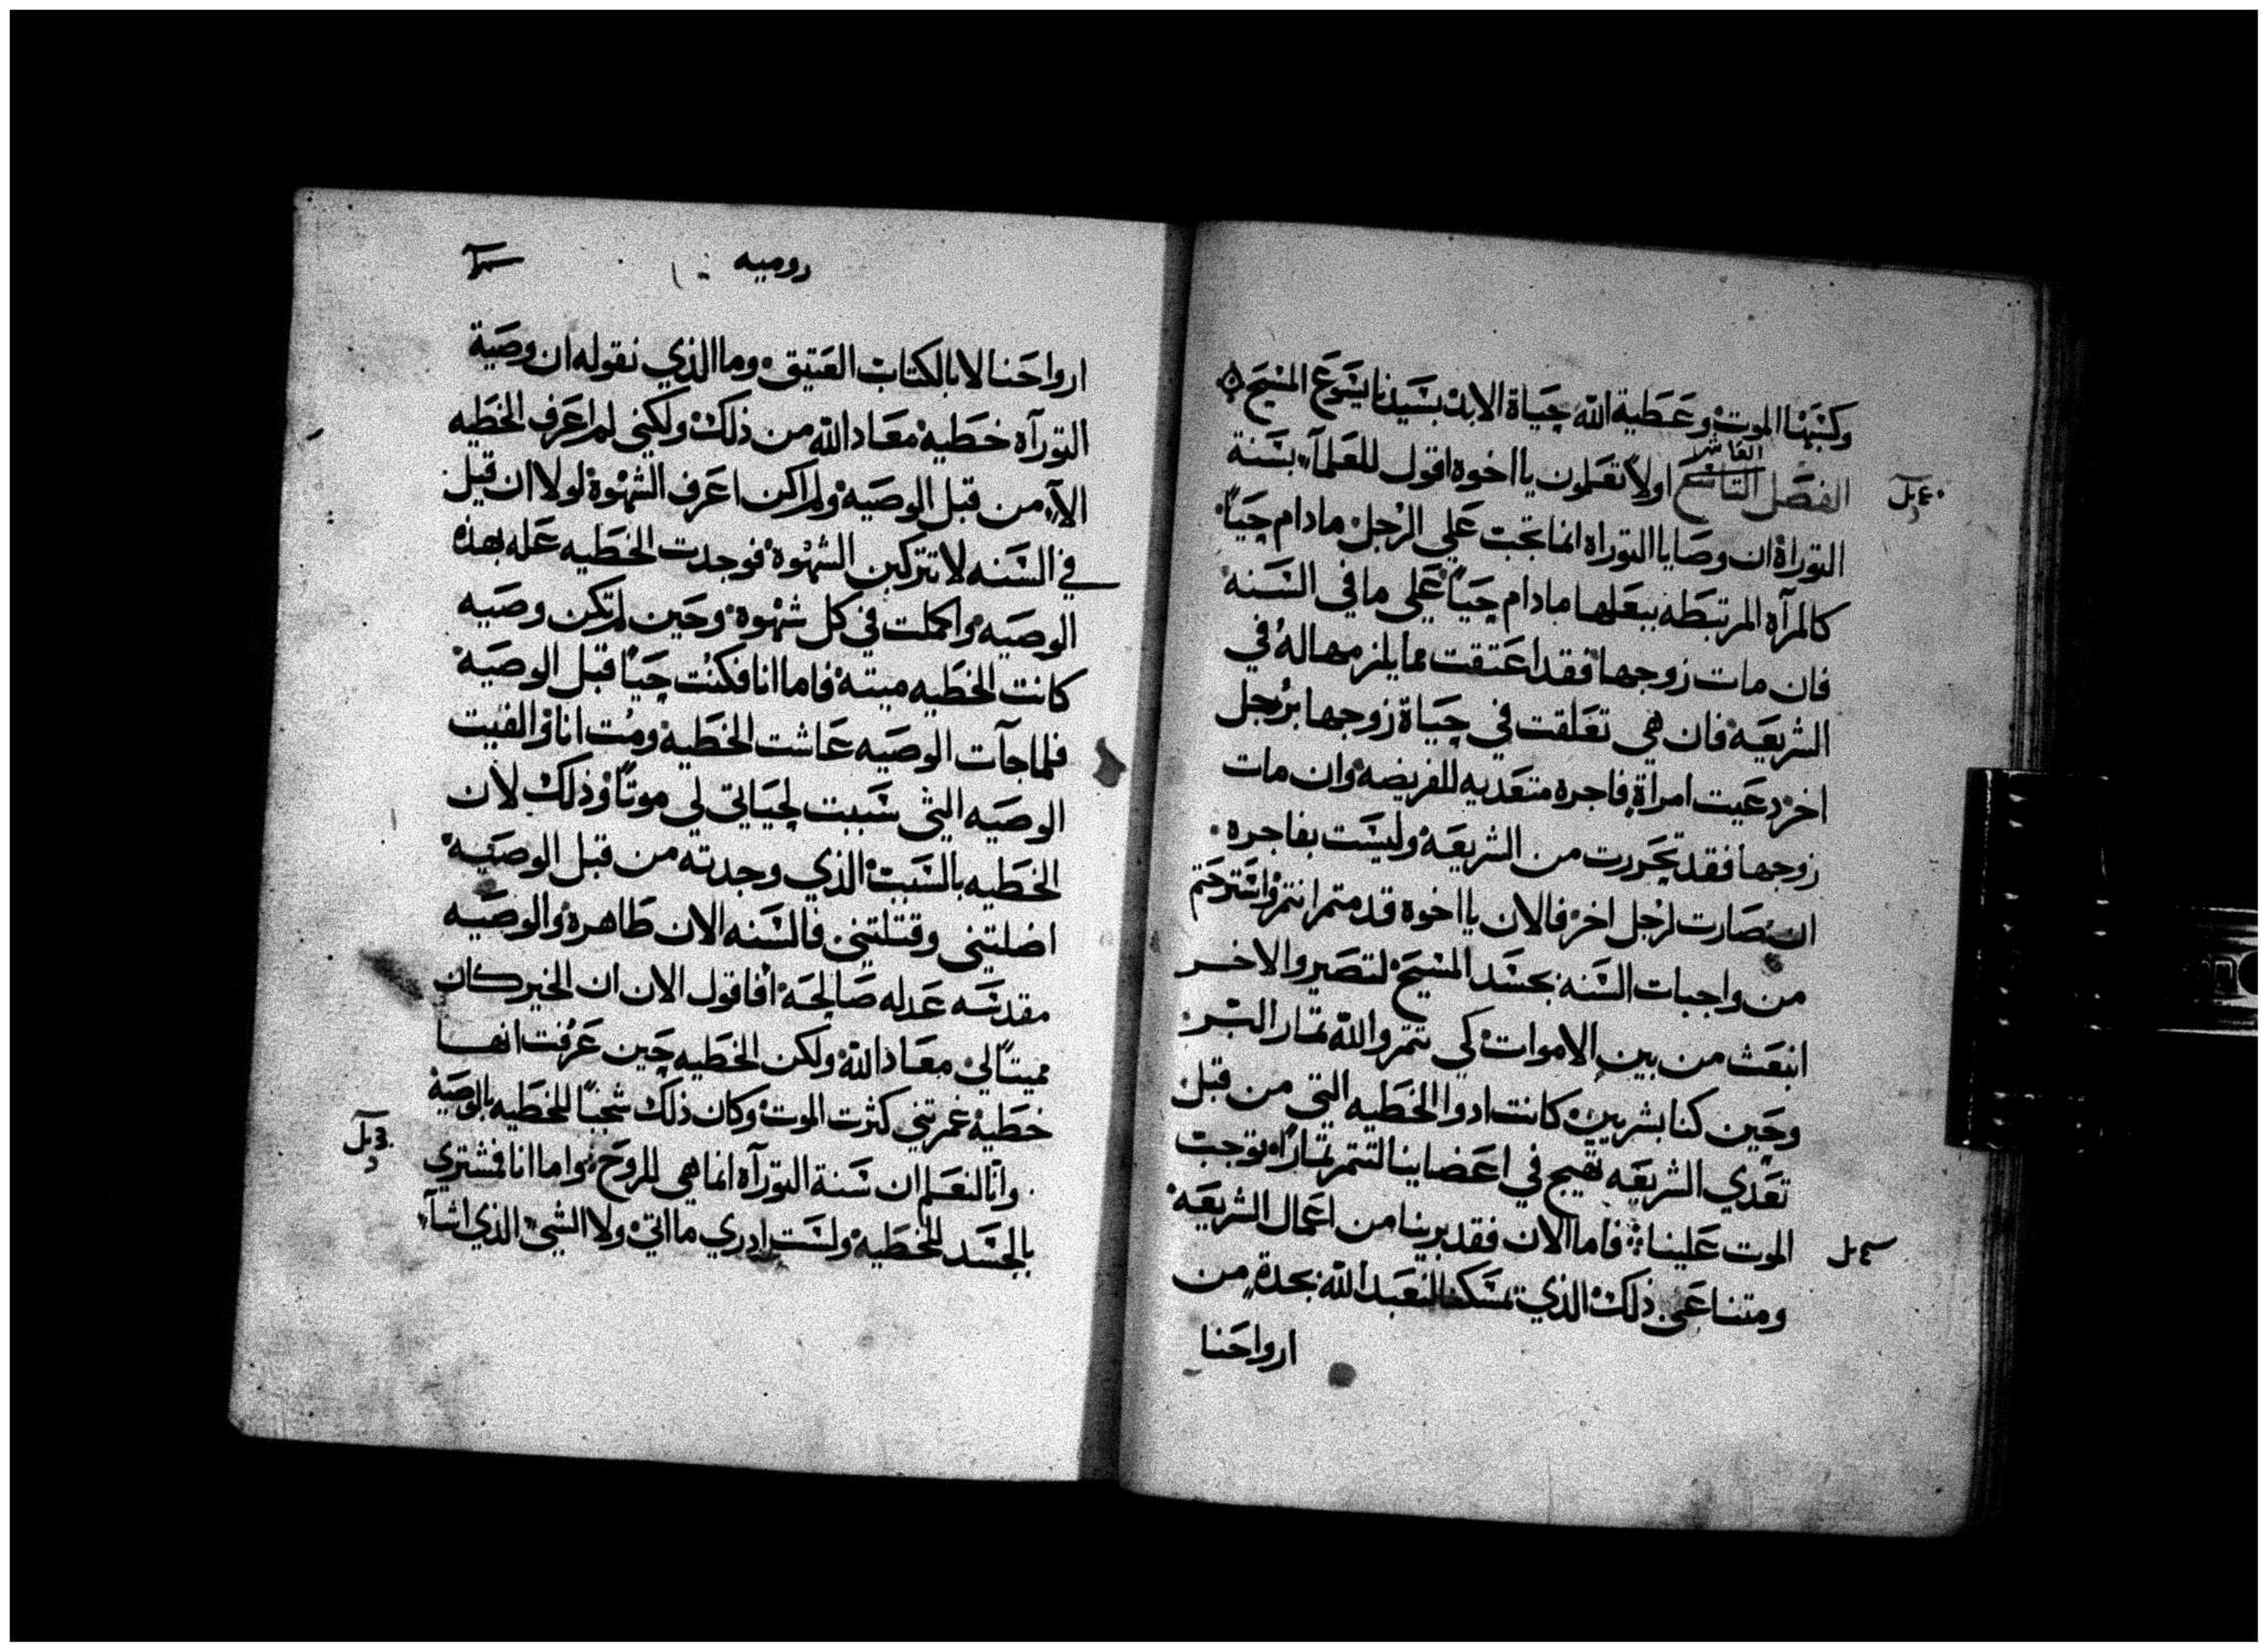 وكسبها الموت وعطية الله حياة الابد بسيدنا يسوع المسيح
العاشر
الفصل التاسع اولا تعلمون يا اخوه اقول للعلمآء بسنة
التوراة ان وصايا التوراه انما تجب علي الرجل ما دام حياً
كالمرآه المرتبطه ببعلها ما دام حياً علي ما في السنه
فان مات زوجها فقد اعتقت مما يلزمها له في
الشريعه فان هي تعلقت في حياة زوجها برجل
اخر دعيت امراة فاجره متعديه للفريضه وان مات
زوجها فقد تحررت من الشريعه وليست بفاجره
ان صارت لرجل اخر فالان يا اخوة قد متم انتم واسترحتم
من واجبات السنه بجسد المسيح لتصيروا لاخر
انبعث من بين الاموات كي تتمروا لله تمار البر
وحين كنا بشريين كانت ادوا الخطيه التي من قبل
تعدي الشريعه تهيج في اعضاينا لتتمر تماراً توجب
الموت علينا فاما الان فقد برينا من اعمال الشريعه
ومتنا عن ذلك الذي تمسكنا لنعبد الله بجدة من
ارواحنا
روميه
ارواحنا لا بالكتاب العتيق وما الذي نقوله ان وصية
التورآه خطيه معاد الله من ذلك ولكني لم اعرف الخطيه
الآ من قبل الوصيه ولم اكن اعرف الشهوة لولا ان قيل
في السنه لا تتركبن الشهوة فوجدت الخطيه عله بهذه
الوصيه واكملت في كل شهوة وحين لم تكن وصيه
كانت الخطيه ميته فاما انا فكنت حياً قبل الوصيه
فلما جآت الوصيه عاشت الخطيه ومت انا والفيت
الوصيه التي سببت لحياتي لي موتاً وذلك لان
الخطيه بالسبب الذي وجدته من قبل الوصيه
اضلتني وقتلتني فالسنه الان طاهره والوصيه
مقدسه عدله صالحه افاقول الان ان الخير كان
مميتاً لي معاد الله ولكن الخطيه حين عرفت انها
خطيه غمرتني كثرت الموت وكان ذلك شجباً للخطيه بالوصية
وانا لنعلم ان سنة التورآه انما هي للروح واما انا فمشتري
بالجسد للخطيه ولست ادري ما اتي ولا الشيء الذي اشآء